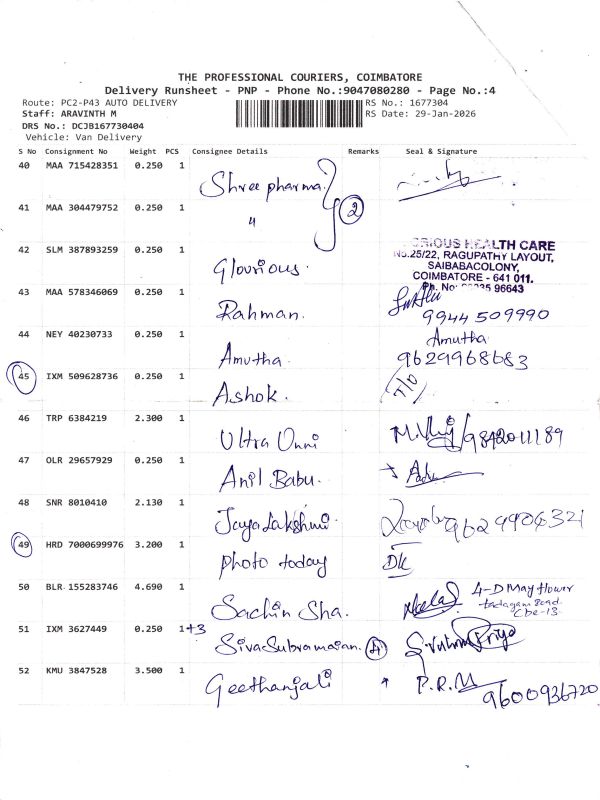 THE PROFESSIONAL COURIERS, COIMBATORE
Delivery Runsheet - PNP - Phone No.:9047080280 - Page No.:4
Route: PC2-P43 AUTO DELIVERY
RS No.: 1677304
Staff: ARAVINTH M
RS Date: 29-Jan-2026
DRS No.: DCJB167730404
Vehicle: Van Delivery
S No Consignment No Weight PCS Consignee Details Remarks Seal & Signature
40 MAA 715428351 0.250 1 Shree pharma
41 MAA 304479752 0.250 1 " 2
42 SLM 387893259 0.250 1 Glourious.
HEALTH CARE
No.25/22, RAGUPATHY LAYOUT,
SAIBABACOLONY,
COIMBATORE - 641 011.
Ph. No: 96643
43 MAA 578346069 0.250 1 Rahman. 9944 509990
44 NEY 40230733 0.250 1 Amutha. Amutha 9629968683
45 IXM 509628736 0.250 1 Ashok.
46 TRP 6384219 2.300 1 Ultra Unni 9842011189
47 OLR 29657929 0.250 1 Anil Babu.
48 SNR 8010410 2.130 1 JayaLakshmi.
49 HRD 7000699976 3.200 1 photo today
50 BLR 155283746 4.690 1 Sachin Sha. 4-D Mayflower
tadagam Road
Cbe-13
51 IXM 3627449 0.250 1+3 SivaSubramaian. 4
52 KMU 3847528 3.500 1 Geethanjali P.R.M 9600936720